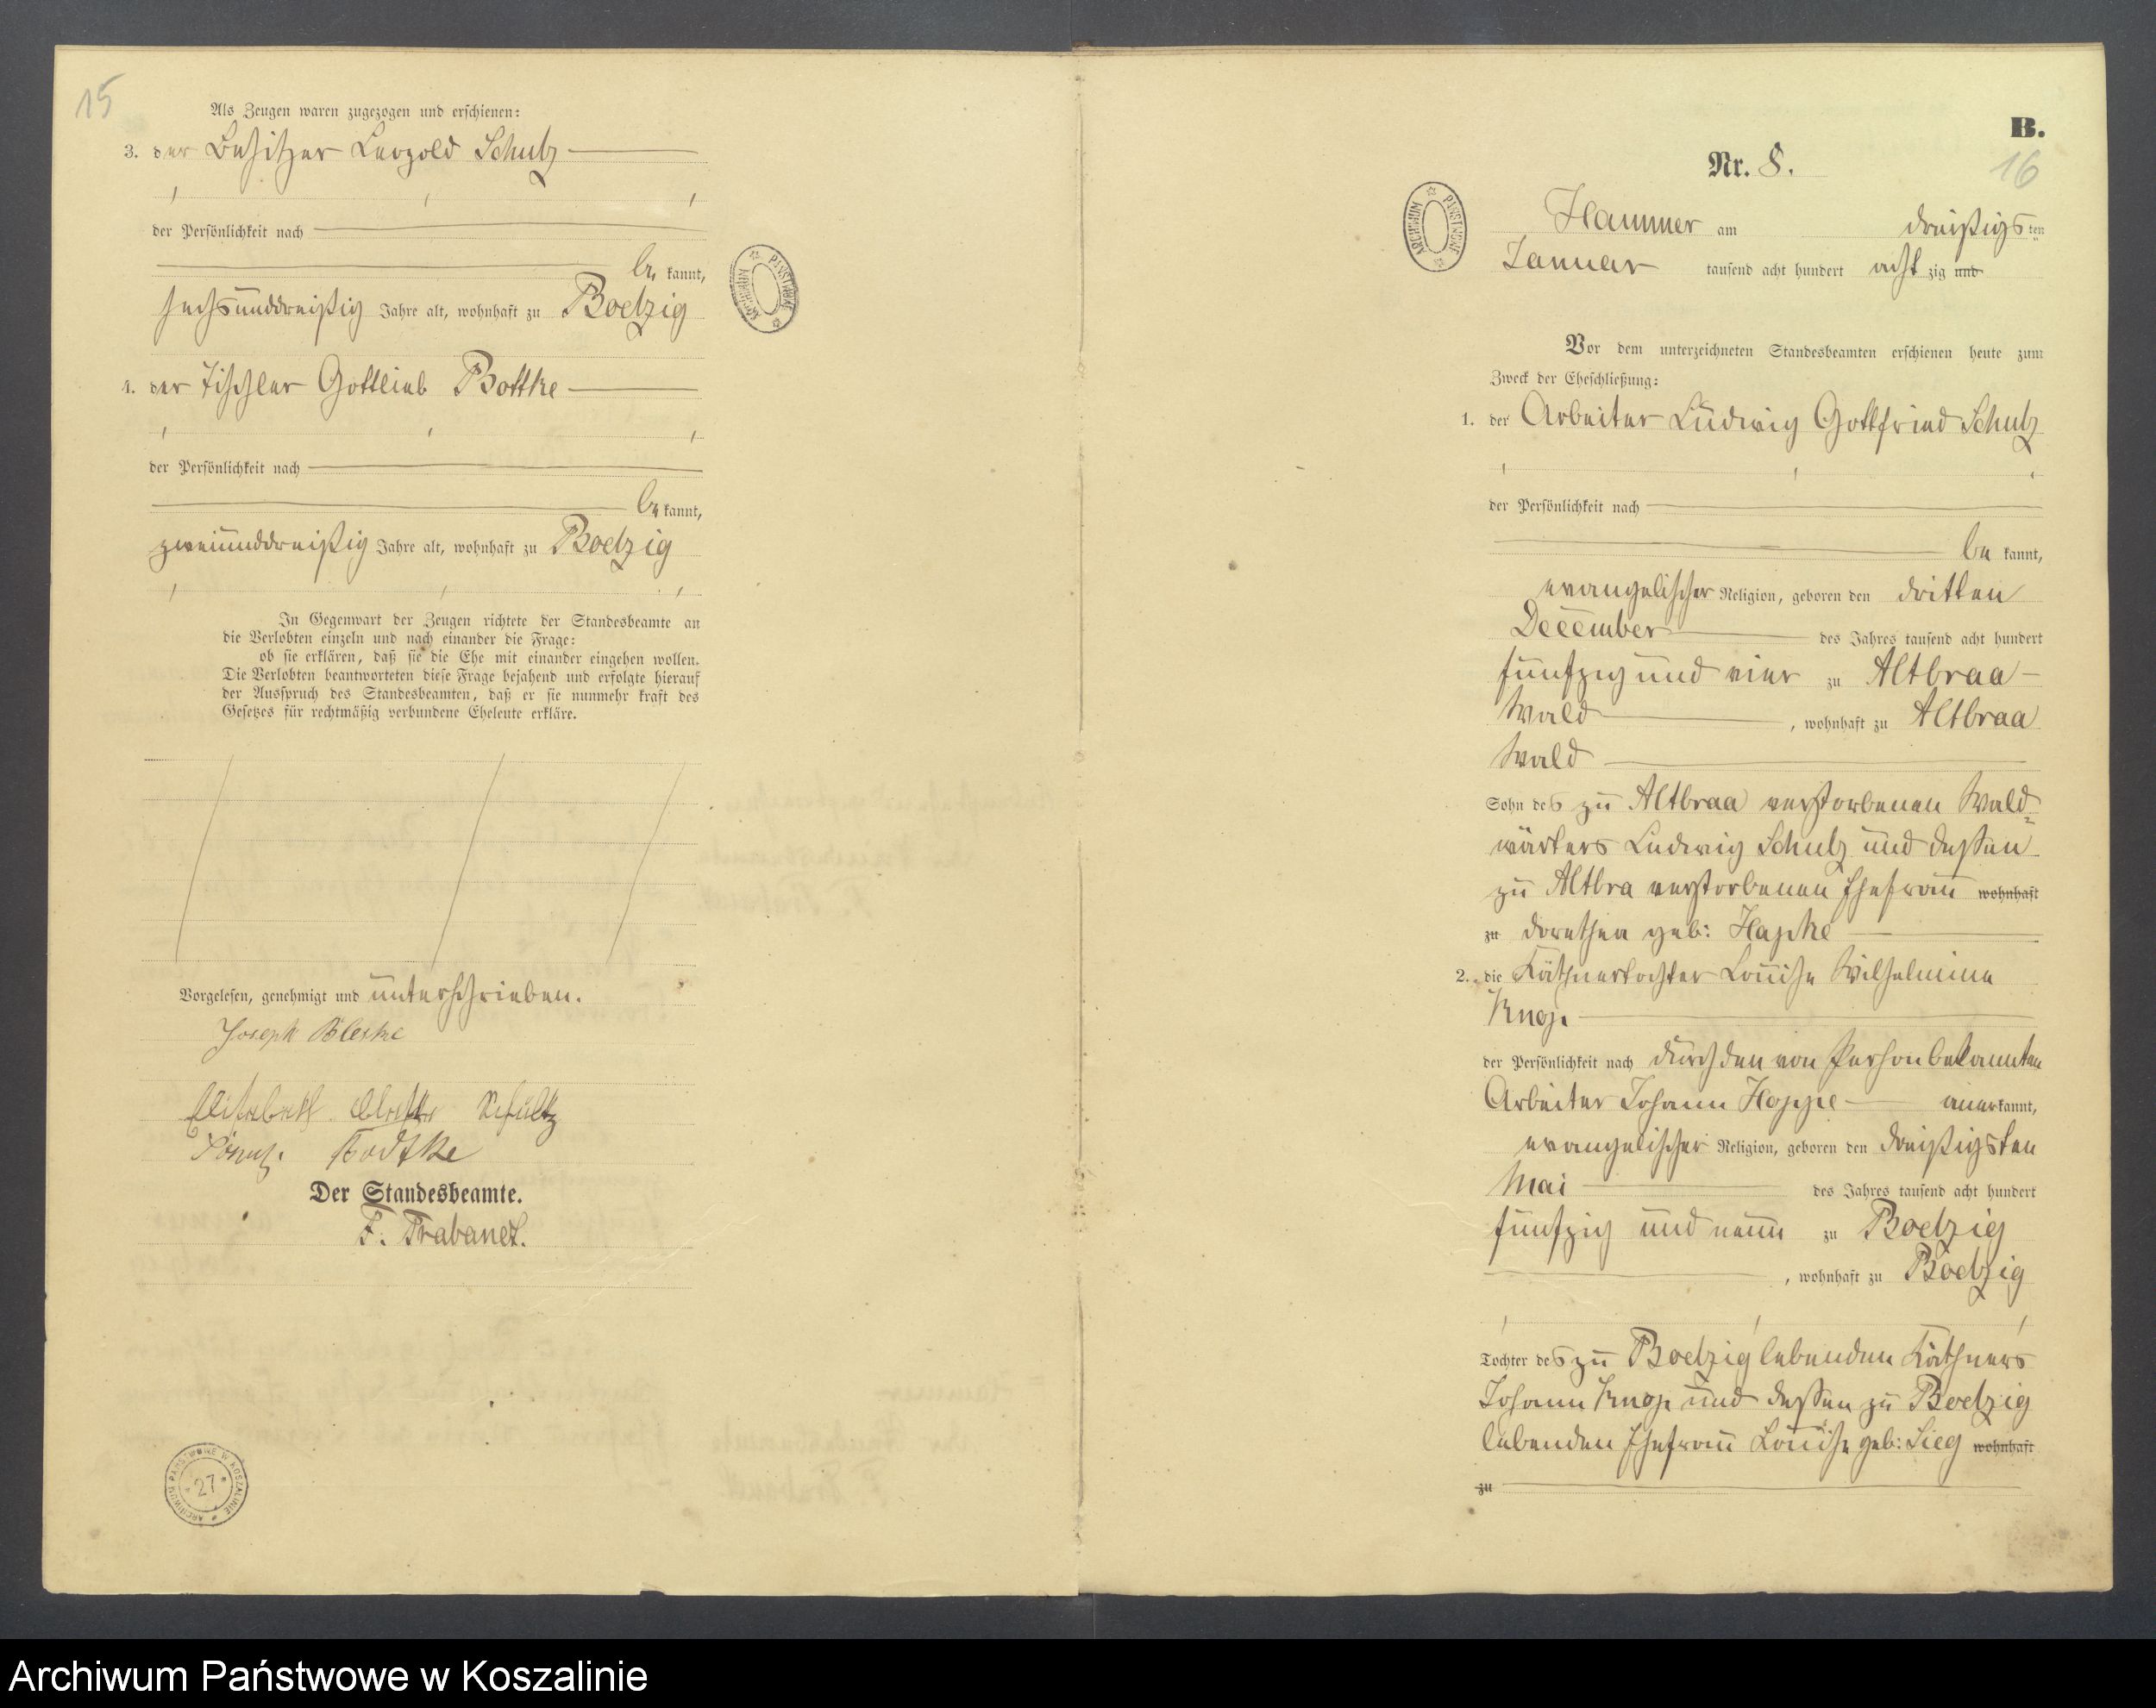 15
Als Zeugen waren zugezogen und erschienen:
3. der Besitzer Leopold Schulz
der Persönlichkeit nach
be kannt,
sechsunddreißig Jahre alt, wohnhaft zu Boetzig
4. der Tischler Gottlieb Bottke
der Persönlichkeit nach
be kannt,
zweiunddreißig Jahre alt, wohnhaft zu Boetzig
In Gegenwart der Zeugen richtete der Standesbeamte an
die Verlobten einzeln und nach einander die Frage:
ob sie erklären, daß sie die Ehe mit einander eingehen wollen.
Die Verlobten beantworteten diese Frage bejahend und erfolgte hierauf
der Ausspruch des Standesbeamten, daß er sie nunmehr kraft des
Gesetzes für rechtmäßig verbundene Eheleute erkläre.
Vorgelesen, genehmigt und unterschrieben.
Joseph Bleske
Elisabeth Schultz
Der Standesbeamte.
F. Trabandt.
ARCHIWUM PAŃSTWOWE W KOSZALINIE
27
ARCHIWUM PAŃSTWOWE
B.
16
Nr. 8.
Hammer am dreißigs ten
Januar tausend acht hundert acht zig und
Vor dem unterzeichneten Standesbeamten erschienen heute zum
Zweck der Eheschließung:
1. der Arbeiter Ludwig Gottfried Schulz
der Persönlichkeit nach
be kannt,
evangelischer Religion, geboren den dritten
December des Jahres tausend acht hundert
fünfzig und vier zu Altbraa-
Wald, wohnhaft zu Altbraa
Wald
Sohn des zu Altbraa verstorbenen Wald-
wärters Ludwig Schulz und dessen
zu Altbra verstorbenen Ehefrau wohnhaft
zu dorethea geb: Hapke
2. die Käthnertochter Louise Wilhelmine
Knop
der Persönlichkeit nach durch den von Person bekannten
Arbeiter Johann Hoppe anerkannt,
evangelischer Religion, geboren den dreißigsten
Mai des Jahres tausend acht hundert
fünfzig und neun zu Boetzig
, wohnhaft zu Boetzig
Tochter des zu Boetzig lebenden Käthners
Johann Knop und dessen zu Boetzig
lebenden Ehefrau Louise geb: Sieg wohnhaft
zu
ARCHIWUM PAŃSTWOWE
Archiwum Państwowe w Koszalinie